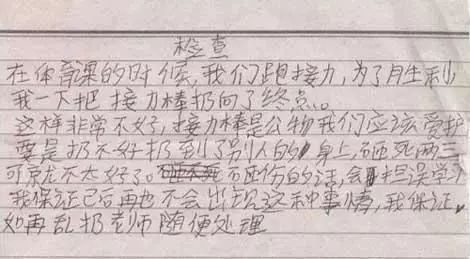 检查
在体育课的时候,我们跑接力,为了月生利
我一下把接力棒扔向了终点。
这样非常不好,接力棒是公物我们应该爱护
要是扔不好扔到了别人的身上,砸死两三
可就不太好了。砸伤的话,会担误学习
我保证已后再也不会出现这种事情,我保证。
如再乱扔老师随便处理